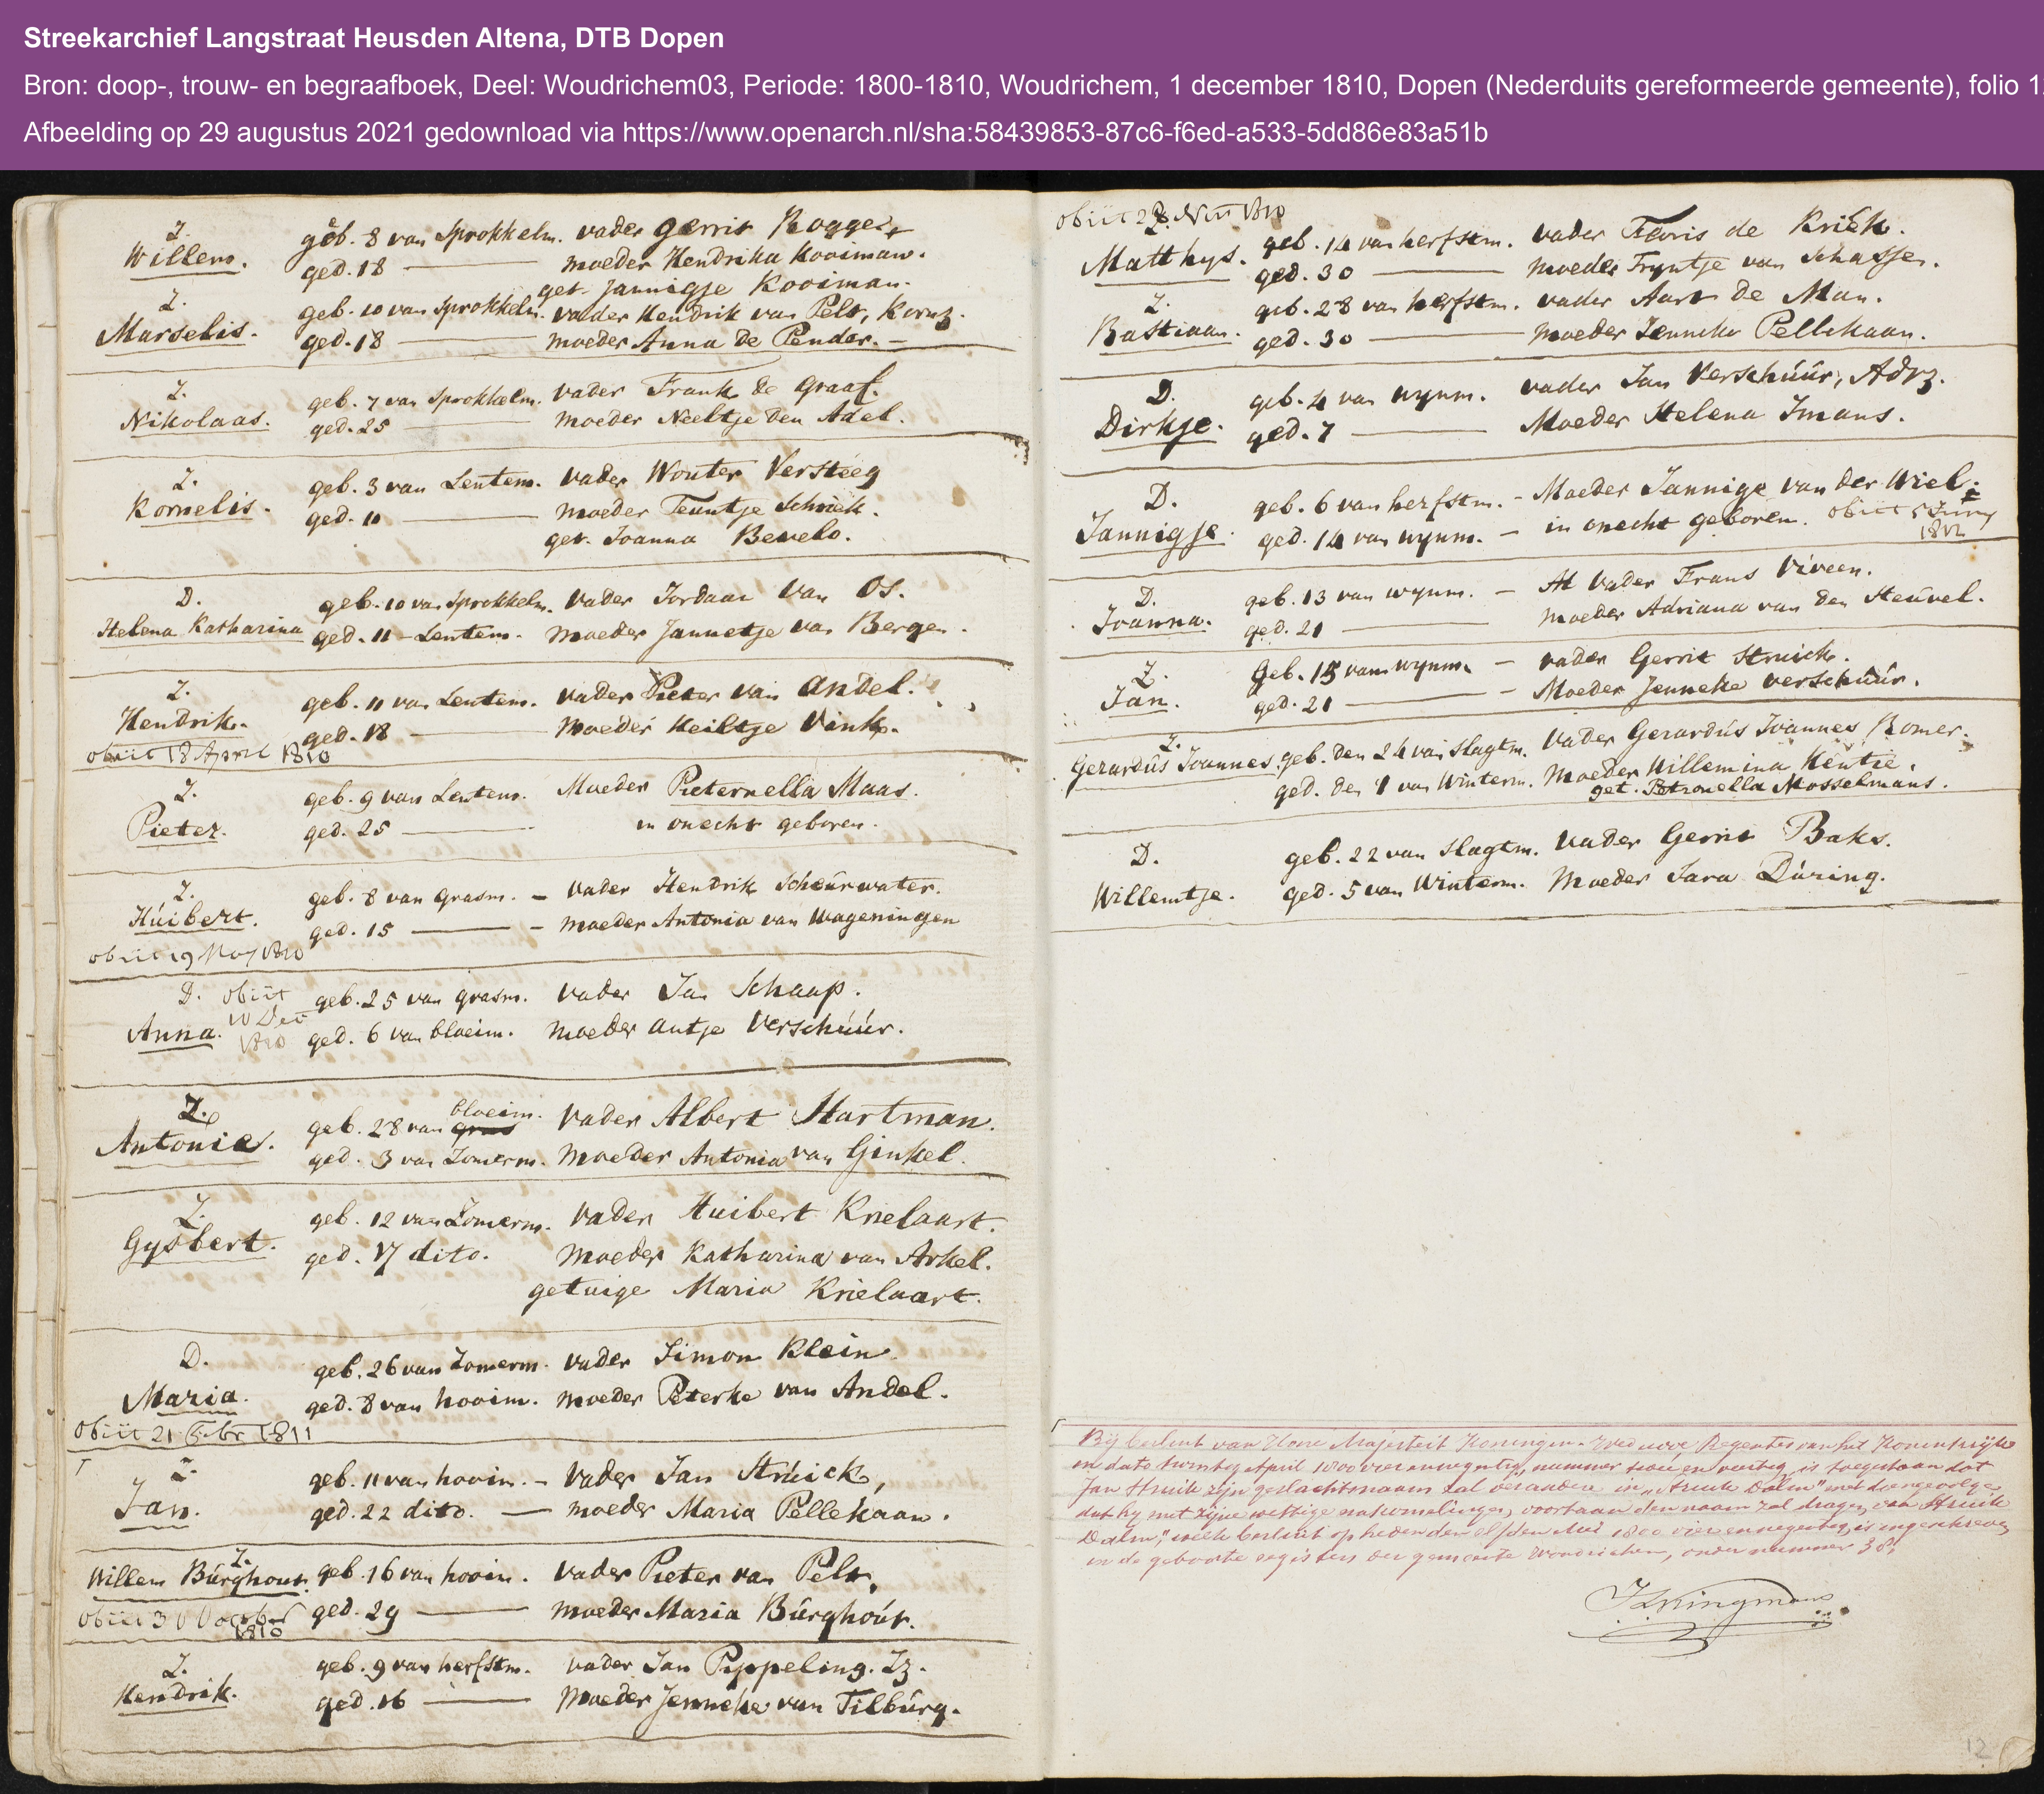 Streekarchief Langstraat Heusden Altena, DTB Dopen
Bron: doop-, trouw- en begraafboek, Deel: Woudrichem03, Periode: 1800-1810, Woudrichem, 1 december 1810, Dopen (Nederduits gereformeerde gemeente), folio 1
Afbeelding op 29 augustus 2021 gedownload via https://www.openarch.nl/sha:58439853-87c6-f6ed-a533-5dd86e83a51b
Z.
Willem. geb. 8 van Sprokkelm. vader Gerrit Rogger
ged. 18 — moeder Hendrika Kooiman.
get. Jannigje Kooiman.
Z.
Marselis. geb. 10 van Sprokkelm. vader Hendrik van Pelt, Kornz.
ged. 18 — moeder Anna de Pender. —
Z.
Nikolaas. geb. 7 van Sprokkelm. vader Frank de Graaf.
ged. 25 — moeder Neeltje den Adel.
Z.
Kornelis. geb. 3 van Lentem. vader Wouter Versteeg
ged. 11 — moeder Teuntje Schriek.
get. Joanna Bevelo.
D.
Helena Katharina geb. 10 van Sprokkelm. vader Jordaan van Os.
ged. 11 - Lentem. moeder Jannetje van Bergen.
Z.
Hendrik. geb. 11 van Lentem. vader Pieter van Andel.
ged. 18 — moeder Heiltje Vink.
obiit 18 April 1810
Z.
Pieter. geb. 9 van Lentem. Moeder Pieternella Maas.
ged. 25 — in onecht geboren.
Z.
Húibert. geb. 8 van grasm. - vader Hendrik Scheúrwater.
ged. 15 — - moeder Antonia van Wageningen
obiit 19 May 1810
D. obiit
10 Dec
1810
Anna. geb. 25 van grasm. vader Jan Schaap.
ged. 6 van bloeim. moeder Antje Verschúúr.
Z.
Antonie. geb. 28 van gras bloeim. vader Albert Hartman.
ged. 3 van Zomerm. moeder Antonia van Ginkel.
Z.
Gysbert. geb. 12 van Zomerm. vader Huibert Krielaart.
ged. 17 dito. moeder Katharina van Arkel.
getuige Maria Krielaart.
D.
Maria. geb. 26 van Zomerm. vader Simon Klein
ged. 8 van hooim. moeder Peterke van Andel.
obiit 21 Febr 1811
Z.
Jan. geb. 11 van hooim. - vader Jan Strúick,
ged. 22 dito. — moeder Maria Pellekaan.
Z.
Willem Búrghout. geb. 16 van hooim. vader Pieter van Pelt,
ged. 29 — moeder Maria Búrghoút.
obiit 30 October
1810
Z.
Hendrik. geb. 9 van herfstm. vader Jan Pyppeling. Jz.
ged. 16 — moeder Jenneke van Tilbúrg.
obiit 28 Nov 1810
Z.
Matthys. geb. 14 van herfstm. vader Floris de Kriek.
ged. 30 — moeder Fryntje van Schassen.
Z.
Bastiaan. geb. 28 van herfstm. vader Aart de Man.
ged. 30 — moeder Jenneke Pellekaan.
D.
Dirkje. geb. 4 van wynm. vader Jan Verschúúr, Adrz.
ged. 7 — Moeder Helena Imans.
D.
Jannigje. geb. 6 van herfstm. - Moeder Jannige van der Wiel.
ged. 14 van wynm. - in onecht geboren. obiit 5 Juny
1812
D.
Joanna. geb. 13 van wynm. - vader Frans Viveen.
ged. 21 — moeder Adriana van den Heúvel.
Z.
Jan. geb. 15 van wynm. - vader Gerrit Struick.
ged. 21 — - Moeder Jenneke Verschúúr.
Z.
Gerardús Joannes geb. den 24 van Slagtm. Vader Gerardús Joannes Romer.
ged. den 1 van Winterm. Moeder Willemina Hentie.
get. Petronella Mosselmans.
D.
Willemtje. geb. 22 van Slagtm. vader Gerrit Baks.
ged. 5 van Winterm. Moeder Sara Dúring.
Bij besluit van Hare Majesteit Koningin-Weduwe Regentes van het Koninkrijk
in dato twintig April 1800 vier en negentig, nummer twee en veertig is toegestaan dat
Jan Struik zijn geslachtsnaam zal verandere in "Struik Dalm" met dien gevolge
dat hij met zijne wettige nakomelingen, voortaan den naam zal dragen van Struik
Dalm", welk besluit op heden den elfden Mei 1800 vier en negentig, is ingeschreven
in de geboorte registers der gemeente Woudrichem, onder nummer 38.
12